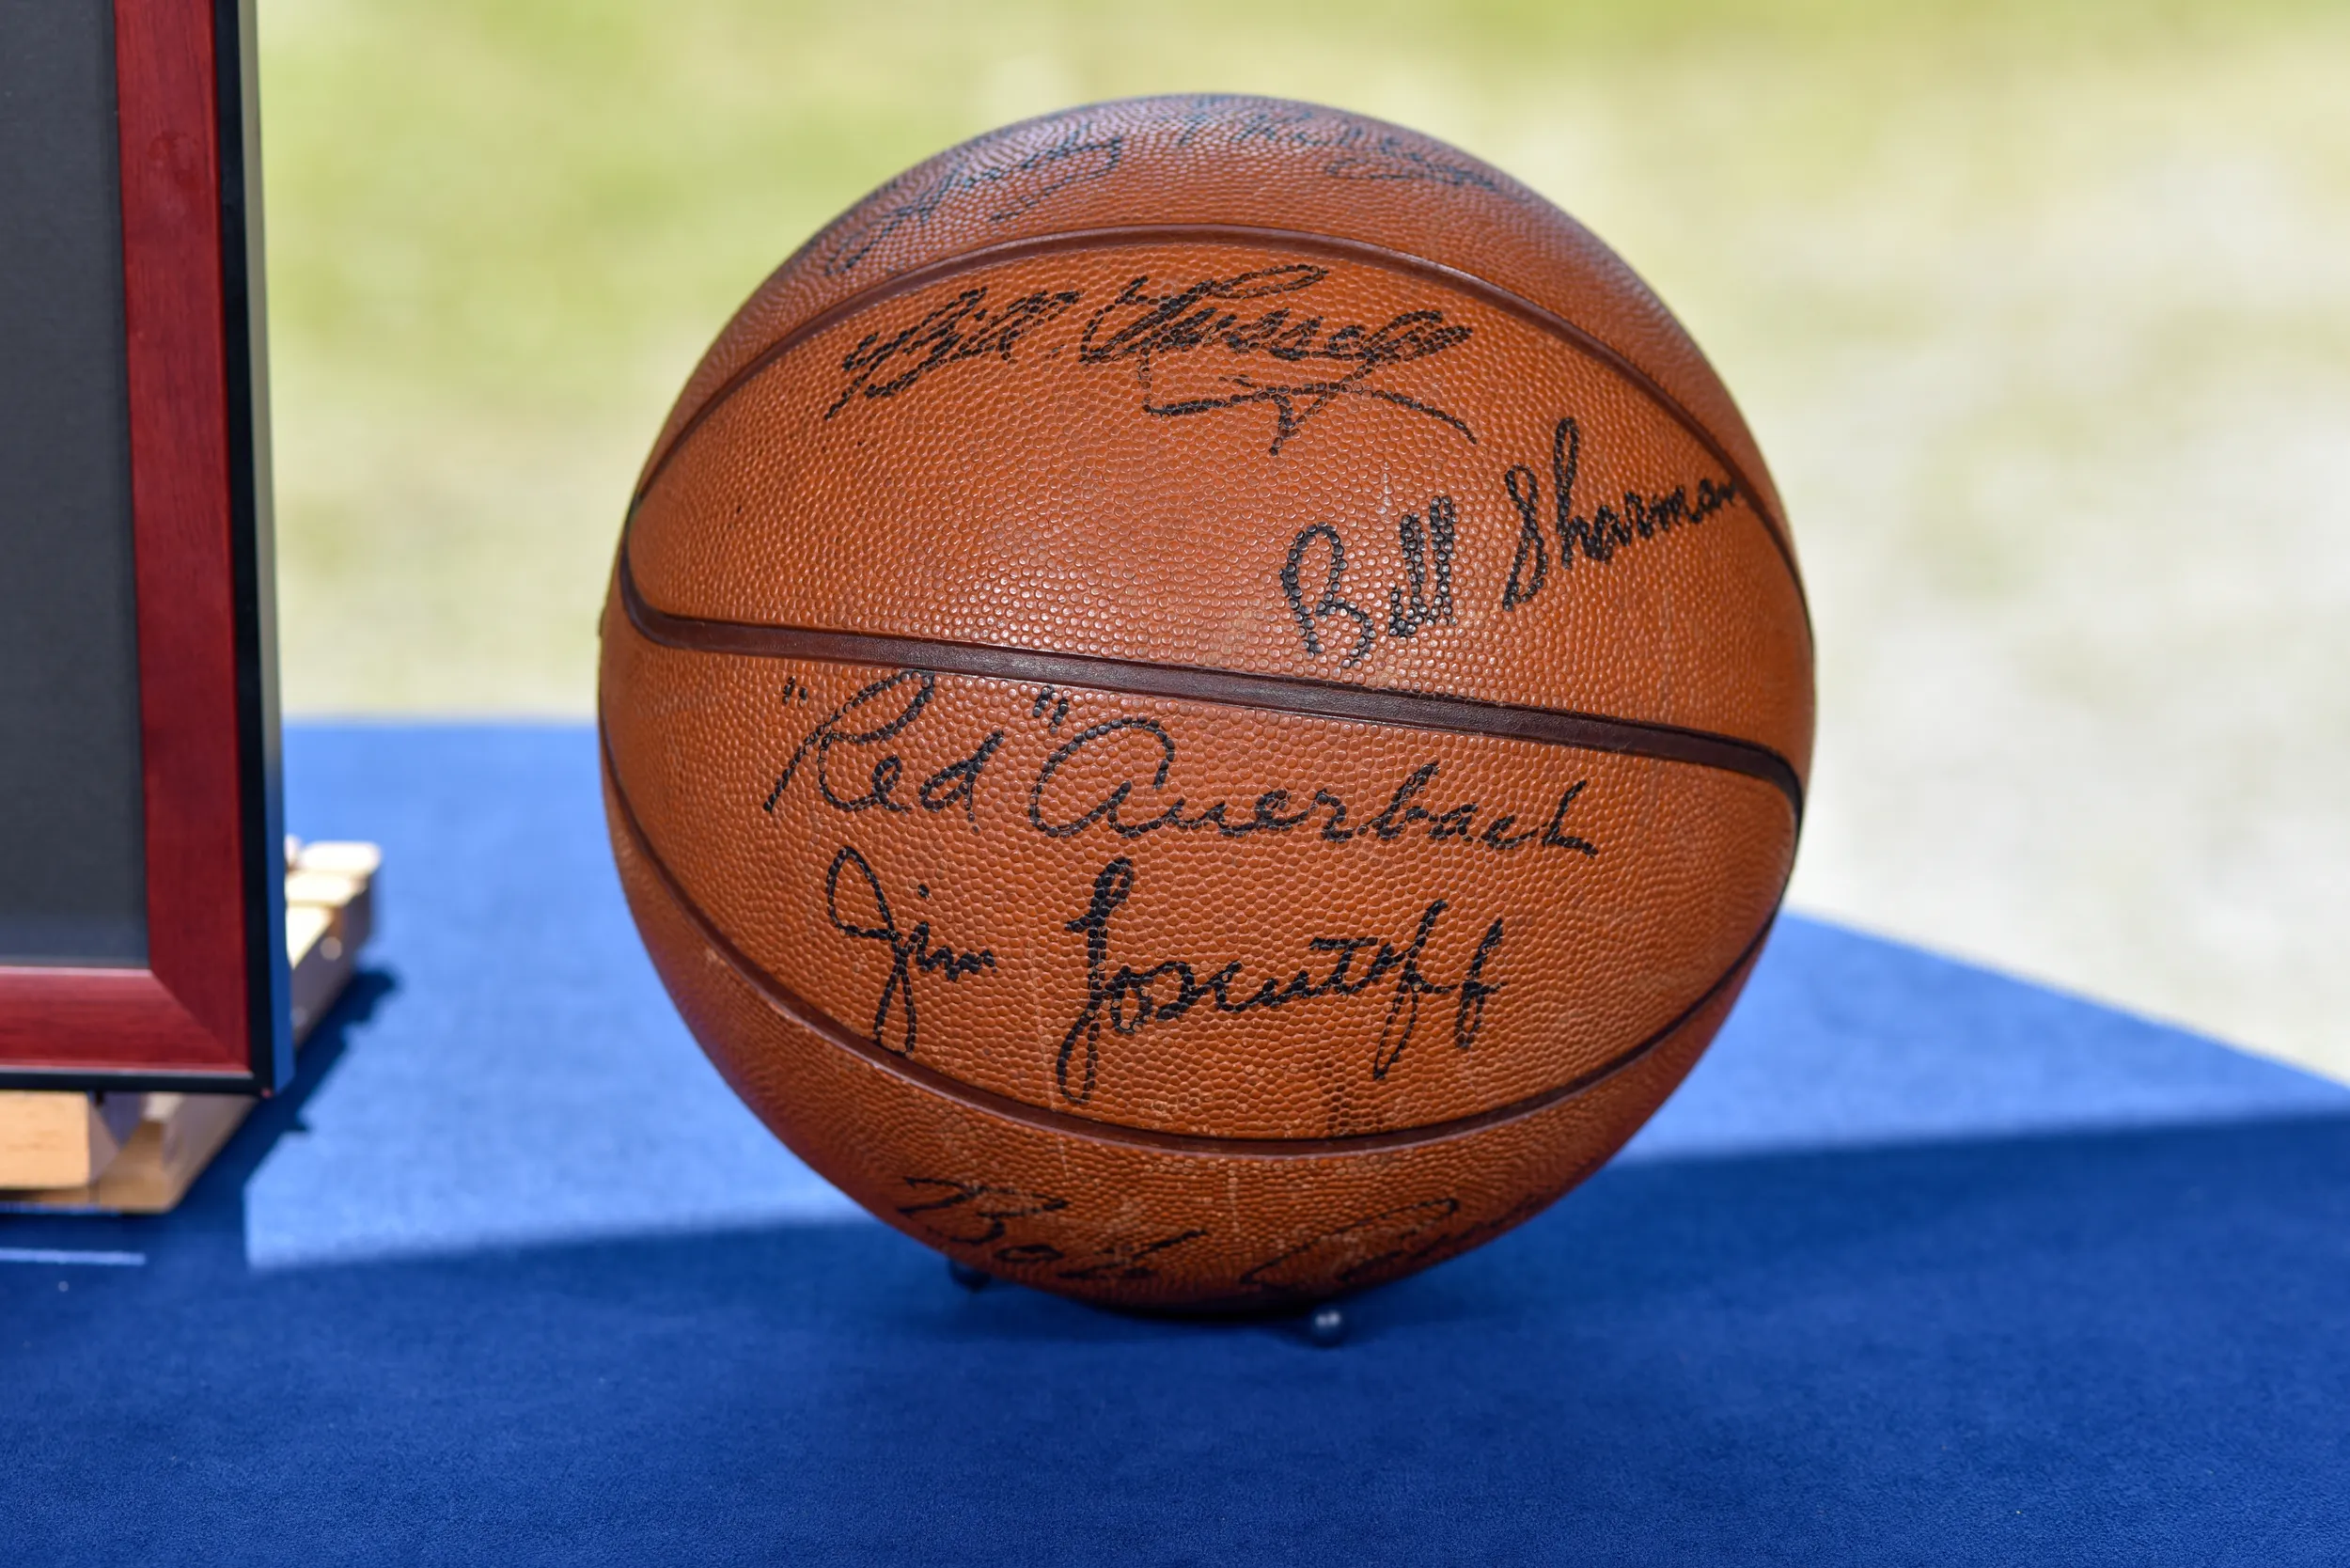 Bill Russell
Bill Sharman
"Red" Auerbach
Jim Loscutoff
Bob